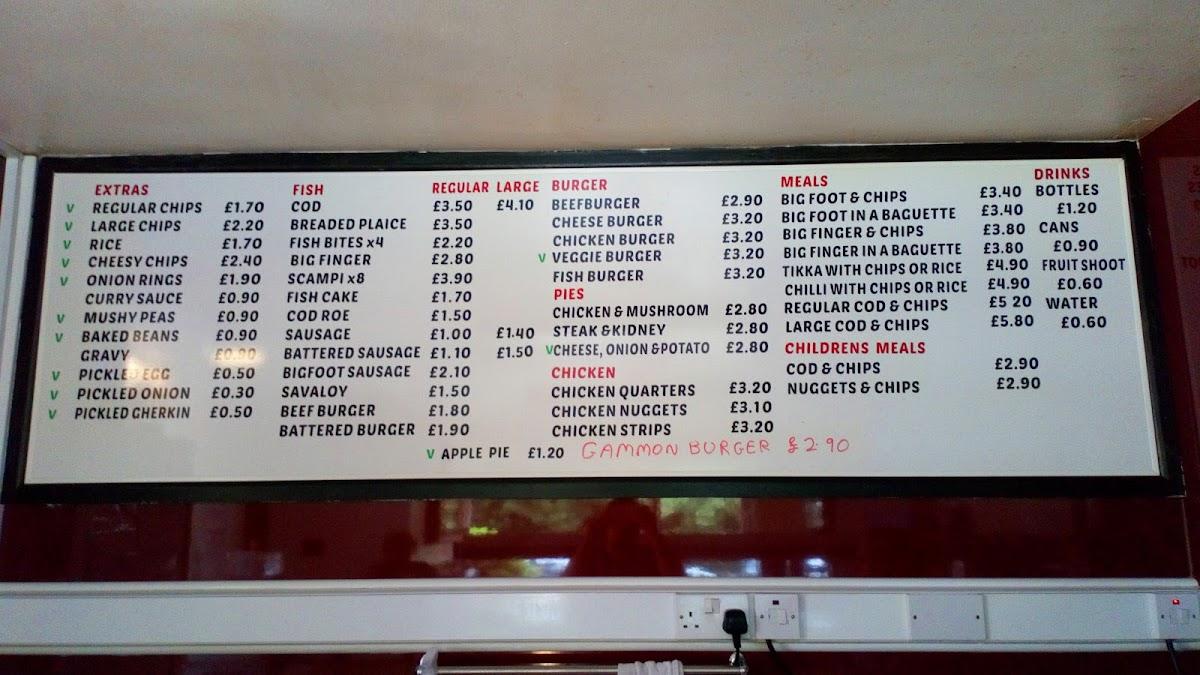 EXTRAS
V REGULAR CHIPS £1.70
V LARGE CHIPS £2.20
V RICE £1.70
V CHEESY CHIPS £2.40
V ONION RINGS £1.90
CURRY SAUCE £0.90
V MUSHY PEAS £0.90
V BAKED BEANS £0.90
GRAVY £0.90
V PICKLED EGG £0.50
V PICKLED ONION £0.30
V PICKLED GHERKIN £0.50
FISH REGULAR LARGE
COD £3.50 £4.10
BREADED PLAICE £3.50
FISH BITES x4 £2.20
BIG FINGER £2.80
SCAMPI x8 £3.90
FISH CAKE £1.70
COD ROE £1.50
SAUSAGE £1.00 £1.40
BATTERED SAUSAGE £1.10 £1.50
BIGFOOT SAUSAGE £2.10
SAVALOY £1.50
BEEF BURGER £1.80
BATTERED BURGER £1.90
V APPLE PIE £1.20
BURGER
BEEFBURGER £2.90
CHEESE BURGER £3.20
CHICKEN BURGER £3.20
V VEGGIE BURGER £3.20
FISH BURGER £3.20
PIES
CHICKEN & MUSHROOM £2.80
STEAK & KIDNEY £2.80
V CHEESE, ONION & POTATO £2.80
CHICKEN
CHICKEN QUARTERS £3.20
CHICKEN NUGGETS £3.10
CHICKEN STRIPS £3.20
GAMMON BURGER £2.90
MEALS
BIG FOOT & CHIPS £3.40
BIG FOOT IN A BAGUETTE £3.40
BIG FINGER & CHIPS £3.80
BIG FINGER IN A BAGUETTE £3.80
TIKKA WITH CHIPS OR RICE £4.90
CHILLI WITH CHIPS OR RICE £4.90
REGULAR COD & CHIPS £5 20
LARGE COD & CHIPS £5.80
CHILDRENS MEALS
COD & CHIPS £2.90
NUGGETS & CHIPS £2.90
DRINKS
BOTTLES
£1.20
CANS
£0.90
FRUIT SHOOT
£0.60
WATER
£0.60